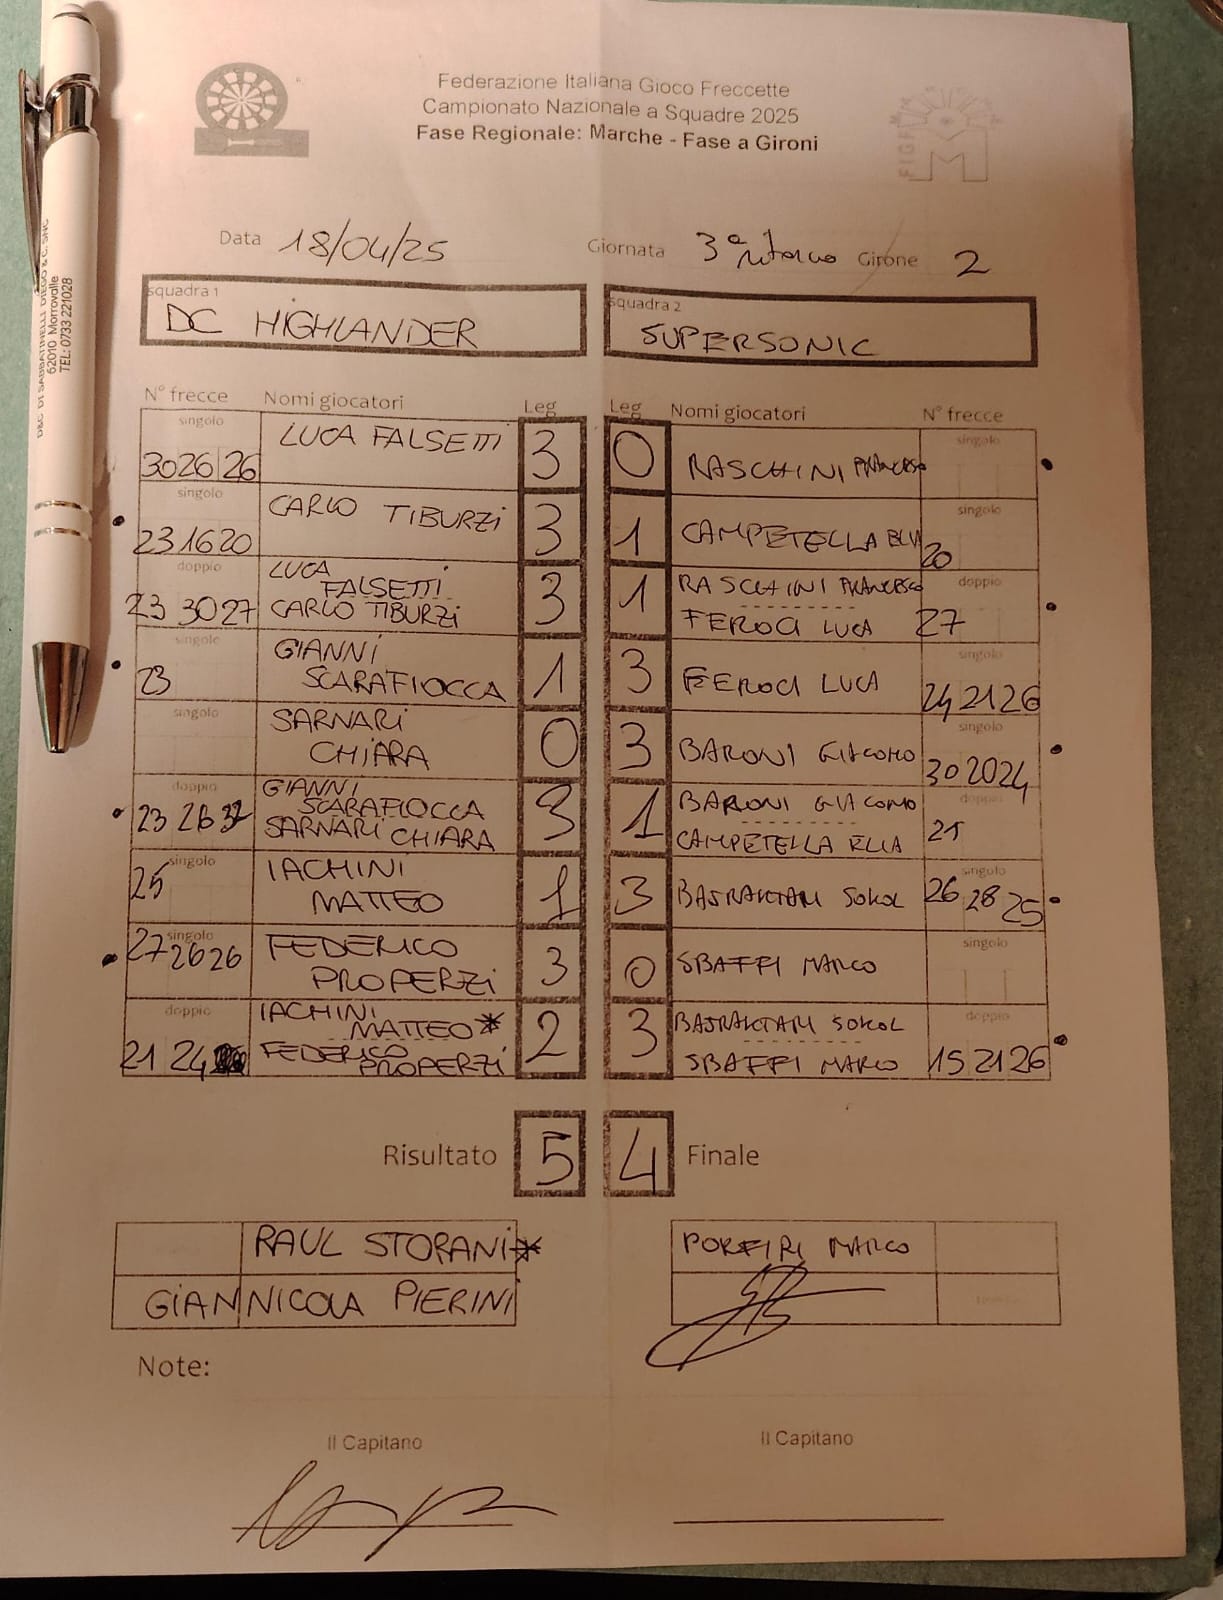 Federazione Italiana Gioco Freccette
Campionato Nazionale a Squadre 2025
Fase Regionale: Marche - Fase a Gironi
Data 18/04/25 Giornata 3° ritorno Girone 2
squadra 1 squadra 2
DC HIGHLANDER SUPERSONIC
N° frecce Nomi giocatori Leg Leg Nomi giocatori N° frecce
singolo singolo
30 26 26 LUCA FALSETTI 3 0 RASCHINI FRANCESCO
singolo singolo
23 16 20 CARLO TIBURZI 3 1 CAMPETELLA ELIA 20
doppio LUCA FALSETTI RASCHINI FRANCESCO doppio
23 30 27 CARLO TIBURZI 3 1 FEROCI LUCA 27
singolo GIANNI singolo
23 SCARAFIOCCA 1 3 FEROCI LUCA 24 21 26
singolo SARNARI singolo
CHIARA 0 3 BARONI GIACOMO 30 20 24
doppio GIANNI SCARAFIOCCA BARONI GIACOMO doppio
23 26 32 SARNARI CHIARA 3 1 CAMPETELLA ELIA 21
singolo IACHINI singolo
25 MATTEO 1 3 BAJRAKTARI SOKOL 26 28 25
singolo FEDERICO singolo
27 26 26 PROPERZI 3 0 SBAFFI MARCO
doppio IACHINI MATTEO* BAJRAKTARI SOKOL doppio
21 24 FEDERICO PROPERZI 2 3 SBAFFI MARCO 15 21 26
Risultato 5 4 Finale
RAUL STORANI* PORFIRI MARCO
GIANNICOLA PIERINI
Note:
Il Capitano Il Capitano
D&C DI SABBATINELLI DIEGO & C. SNC
62010 Morrovalle
TEL: 0733 221028